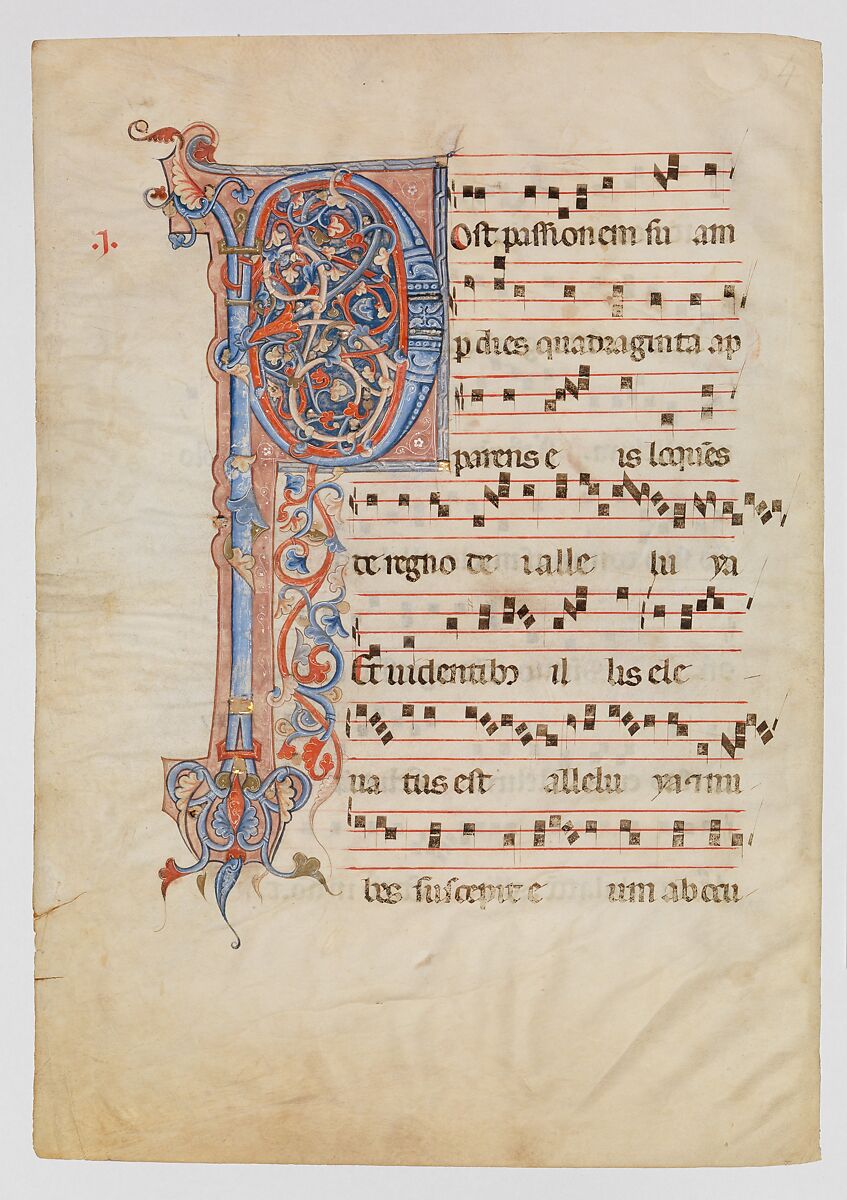 4
.I.
POst passionem su am
p dies quadraginta ap
parens e is loquēs
de regno de i alle lu ya
Et uidentibꝰ il lis ele
ua tus est allelu ya ⁊ nu
bes suscepit e um ab ocu